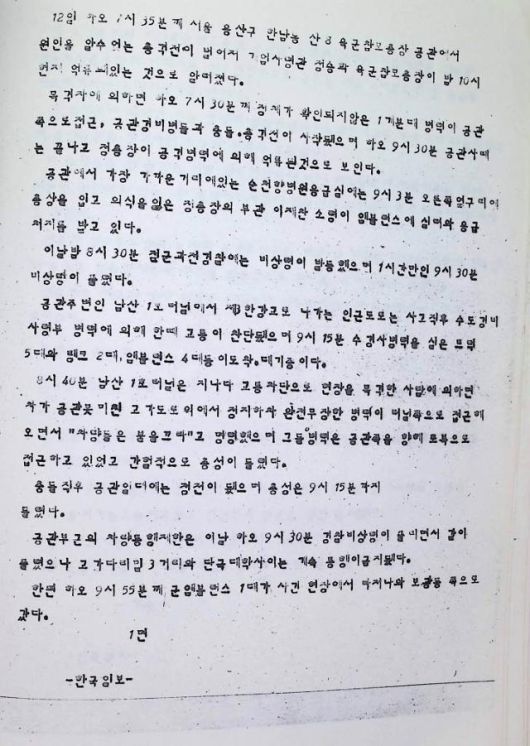 12일 하오 7시 35분께 서울 용산구 한남동 산8 육군참모총장 공관에서
원인을 알수 없는 총격전이 벌어져 기업사령관 정승화 육군참모총장이 밤 10시
현재 억류돼있는 것으로 알려졌다.
목격자에 의하면 하오 7시 30분께 정체가 확인되지않은 1개분대 병력이 공관
쪽으로접근, 공관경비병들과 충돌.총격전이 시작됐으며 하오 9시 30분 공관사태
는 끝나고 정총장이 공격병력에 의해 억류된것으로 보인다.
공관에서 가장 가까운 거리에있는 순천향병원응급실에는 9시 3분 오른쪽옆구리에
총상을 입고 의식을잃은 정총장의 부관 이재천 소령이 앰블런스에 실려와 응급
처치를 받고 있다.
이날밤 8시 30분 전군과전경찰에는 비상령이 발동했으며 1시간만인 9시 30분
비상령이 풀렸다.
공관주변인 남산 1호터널에서 제3한강교로 나가는 인근도로는 사고직후 수도경비
사령부 병력에 의해 한때 교통이 차단됐으며 9시 15분 수경사병력을 실은 트럭
5대와 탱크 2대, 앰블런스 4대등이도착.대기중이다.
8시 40분 남산 1호터널은 지나다 교통차단으로 현장을 목격한 사람에 의하면
차가 공관못미친 고가도로위에서 정지하자 완전무장한 병력이 터널쪽으로 접근해
오면서 "차량들은 불을끄라"고 명령했으며 그들병력은 공관쪽을 향해 도보로
접근하고 있었고 간헐적으로 총성이 들렸다.
충돌직후 공관일대에는 정전이 됐으며 총성은 9시 15분까지
들렸다.
공관부근의 차량통행제한은 이날 하오 9시 30분 경찰비상령이 풀리면서 같이
풀렸으나 고가다리밑 3거리와 단국대학사이는 계속 통행이금지됐다.
한편 하오 9시 55분께 군앰블런스 1대가 사건 현장에서 빠져나와 보광동 쪽으로
갔다.
1면
-한국일보-